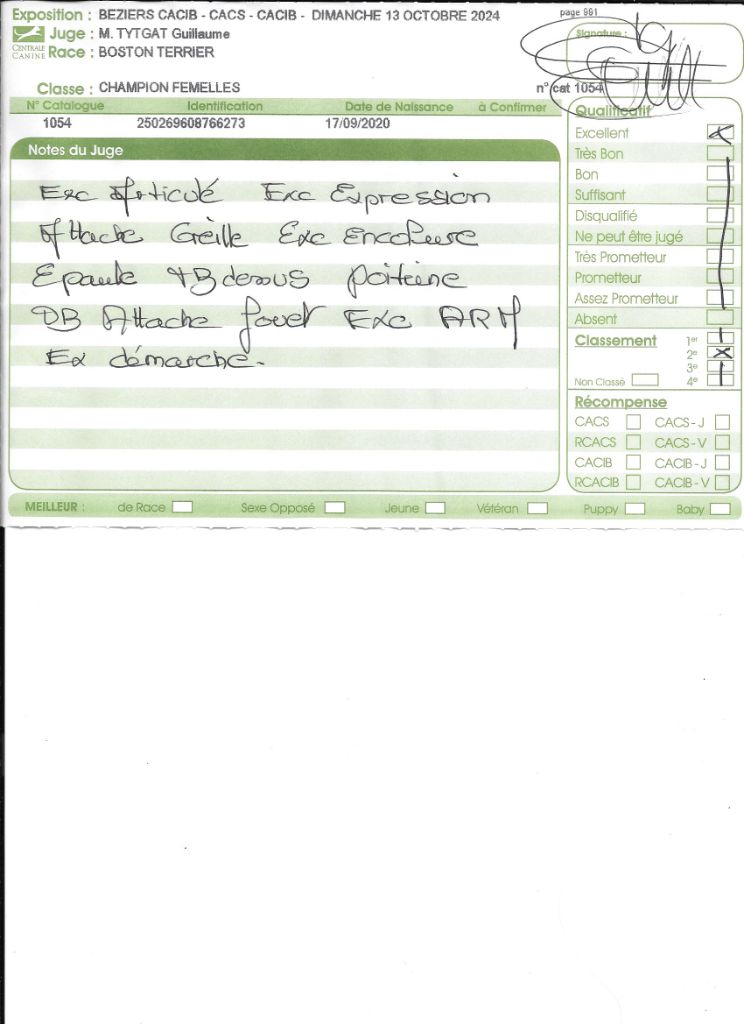 Exposition : BEZIERS CACIB - CACS - CACIB - DIMANCHE 13 OCTOBRE 2024
page 991
Juge : M. TYTGAT Guillaume
Signature :
CENTRALE CANINE
Race : BOSTON TERRIER
Classe : CHAMPION FEMELLES
n° cat 1054
N° Catalogue Identification Date de Naissance à Confirmer
1054 250269608766273 17/09/2020
Notes du Juge
Exc Articulé Exc Expression
Attache Oreille Exc Encolure
Epaule TB dessus poitrine
TB Attache fouet Exc ARM
Ex démarche.
Qualificatif
Excellent X
Très Bon
Bon
Suffisant
Disqualifié
Ne peut être jugé
Très Prometteur
Prometteur
Assez Prometteur
Absent
Classement 1er
2e X
3e
Non Classé 4e
Récompense
CACS CACS - J
RCACS CACS - V
CACIB CACIB - J
RCACIB CACIB - V
MEILLEUR : de Race Sexe Opposé Jeune Vétéran Puppy Baby